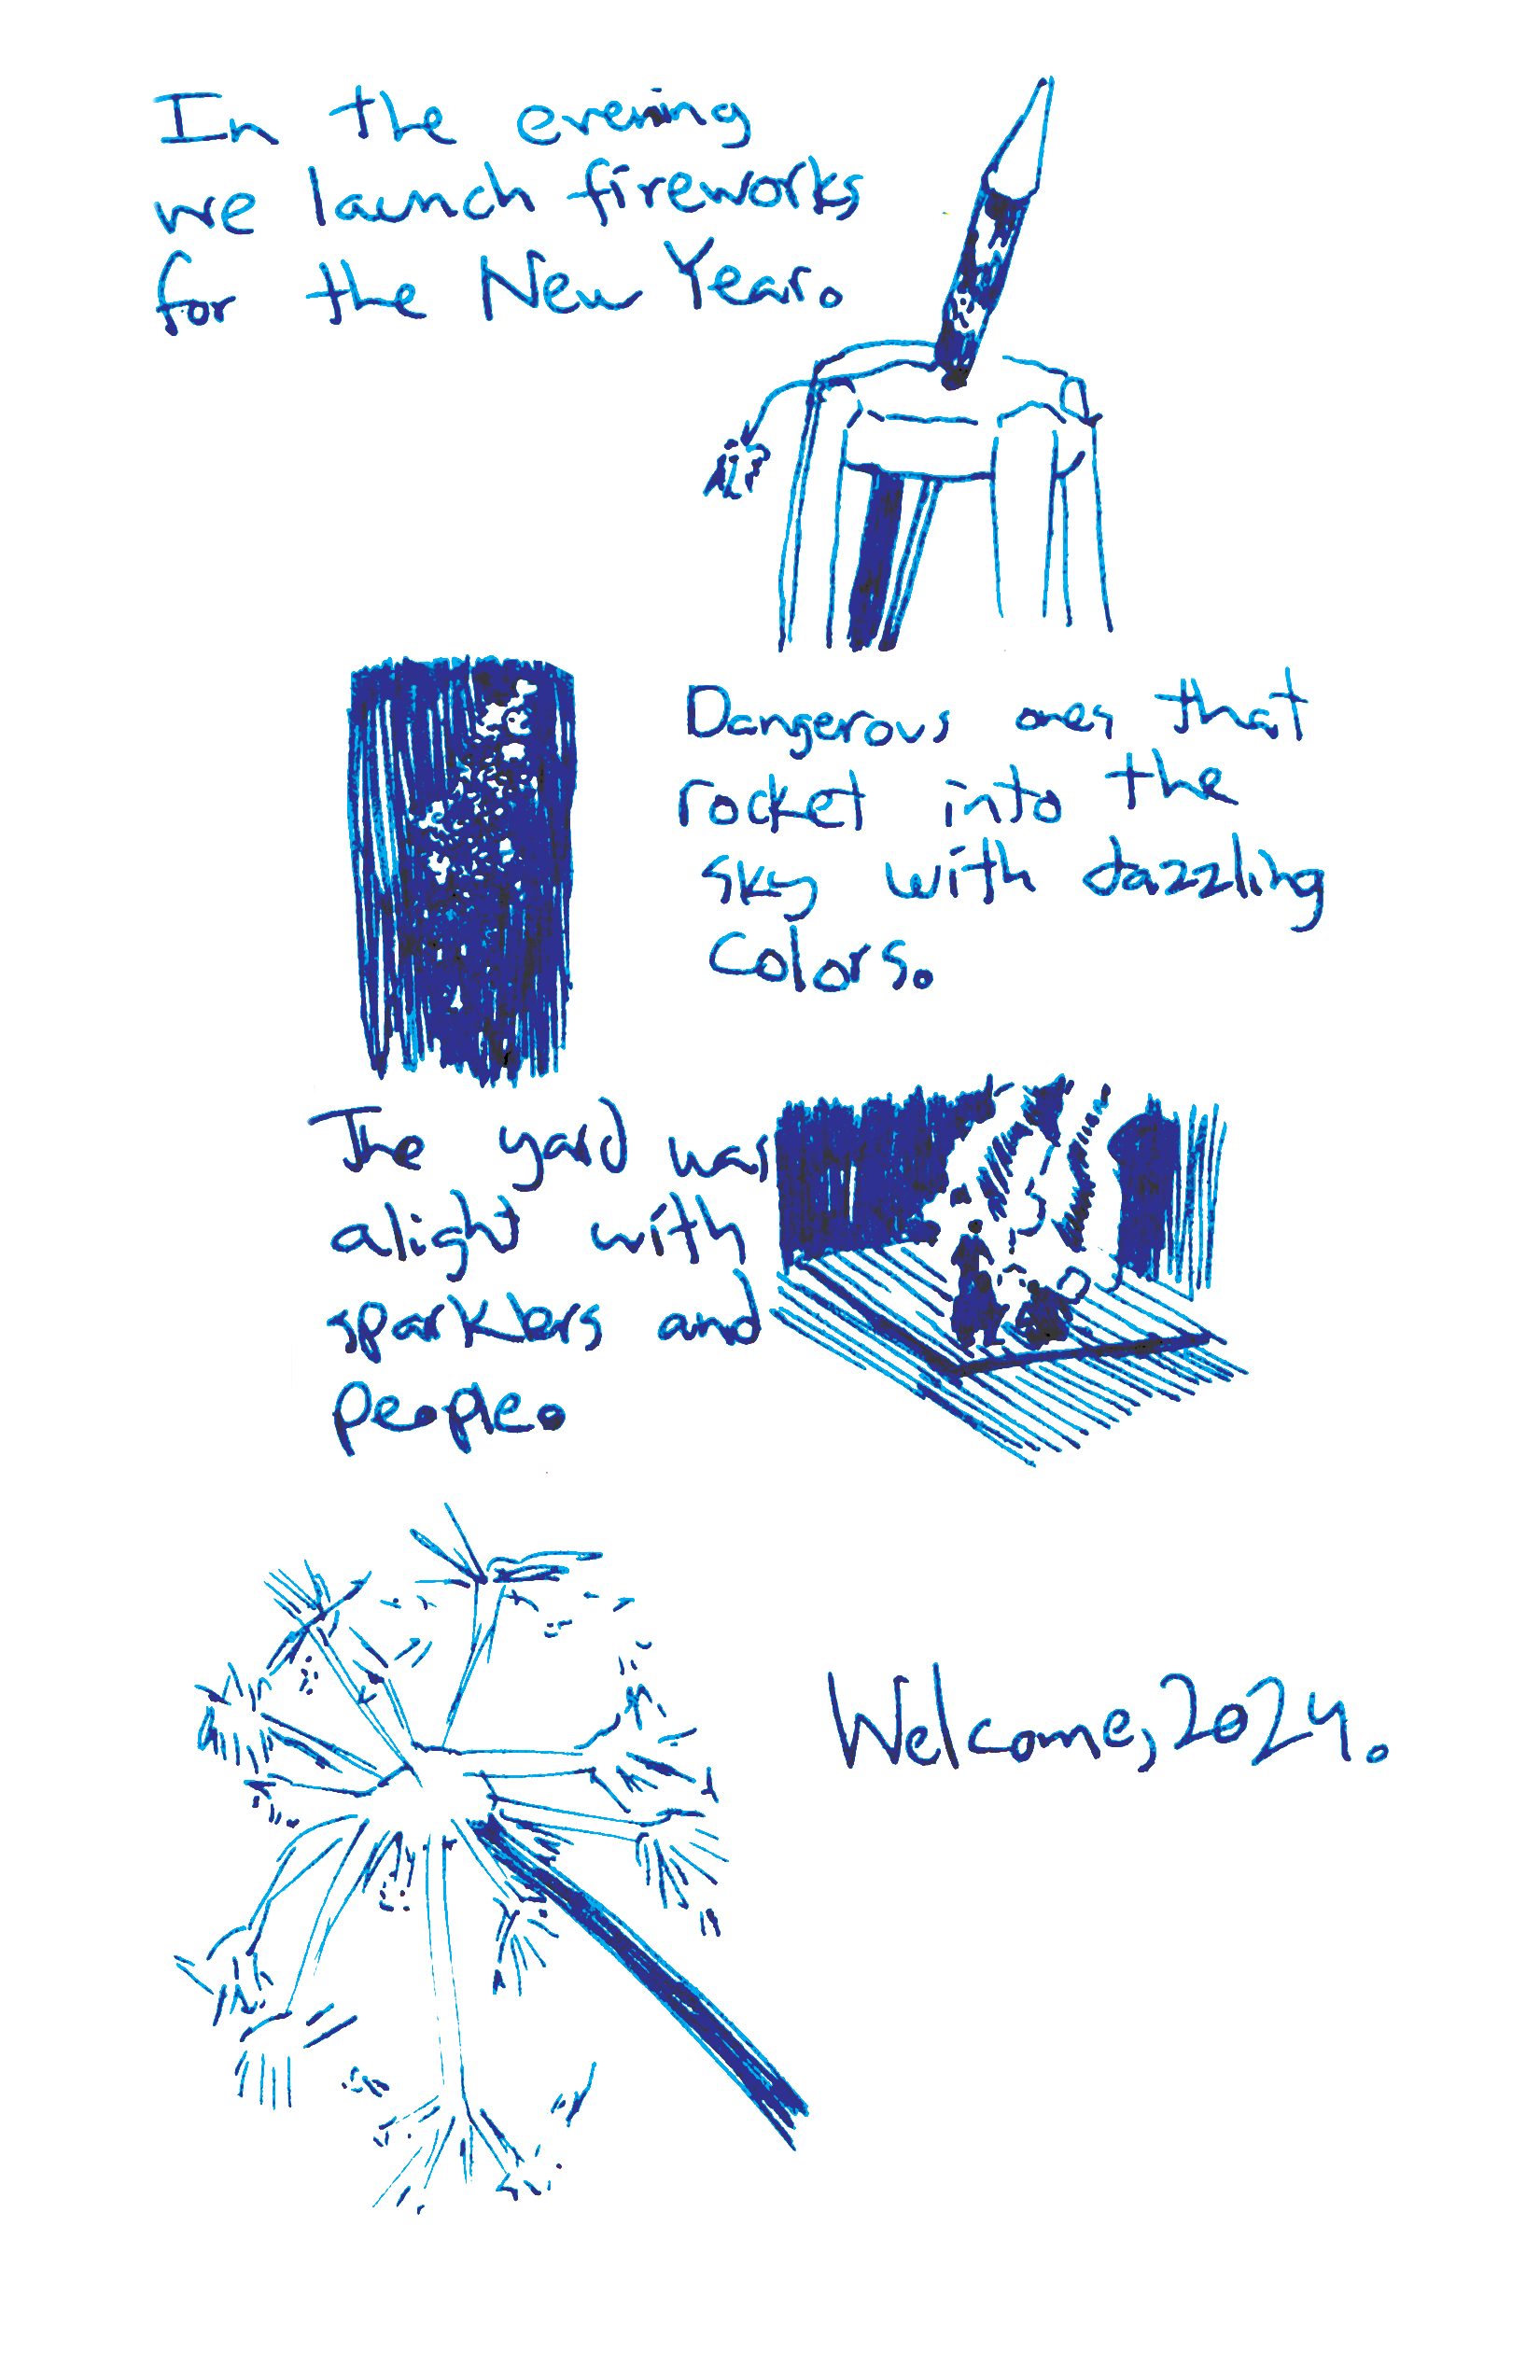 In the evening
we launch fireworks
for the New Year.
Dangerous ones that
rocket into the
sky with dazzling
colors.
The yard was
alight with
sparklers and
people.
Welcome, 2024.